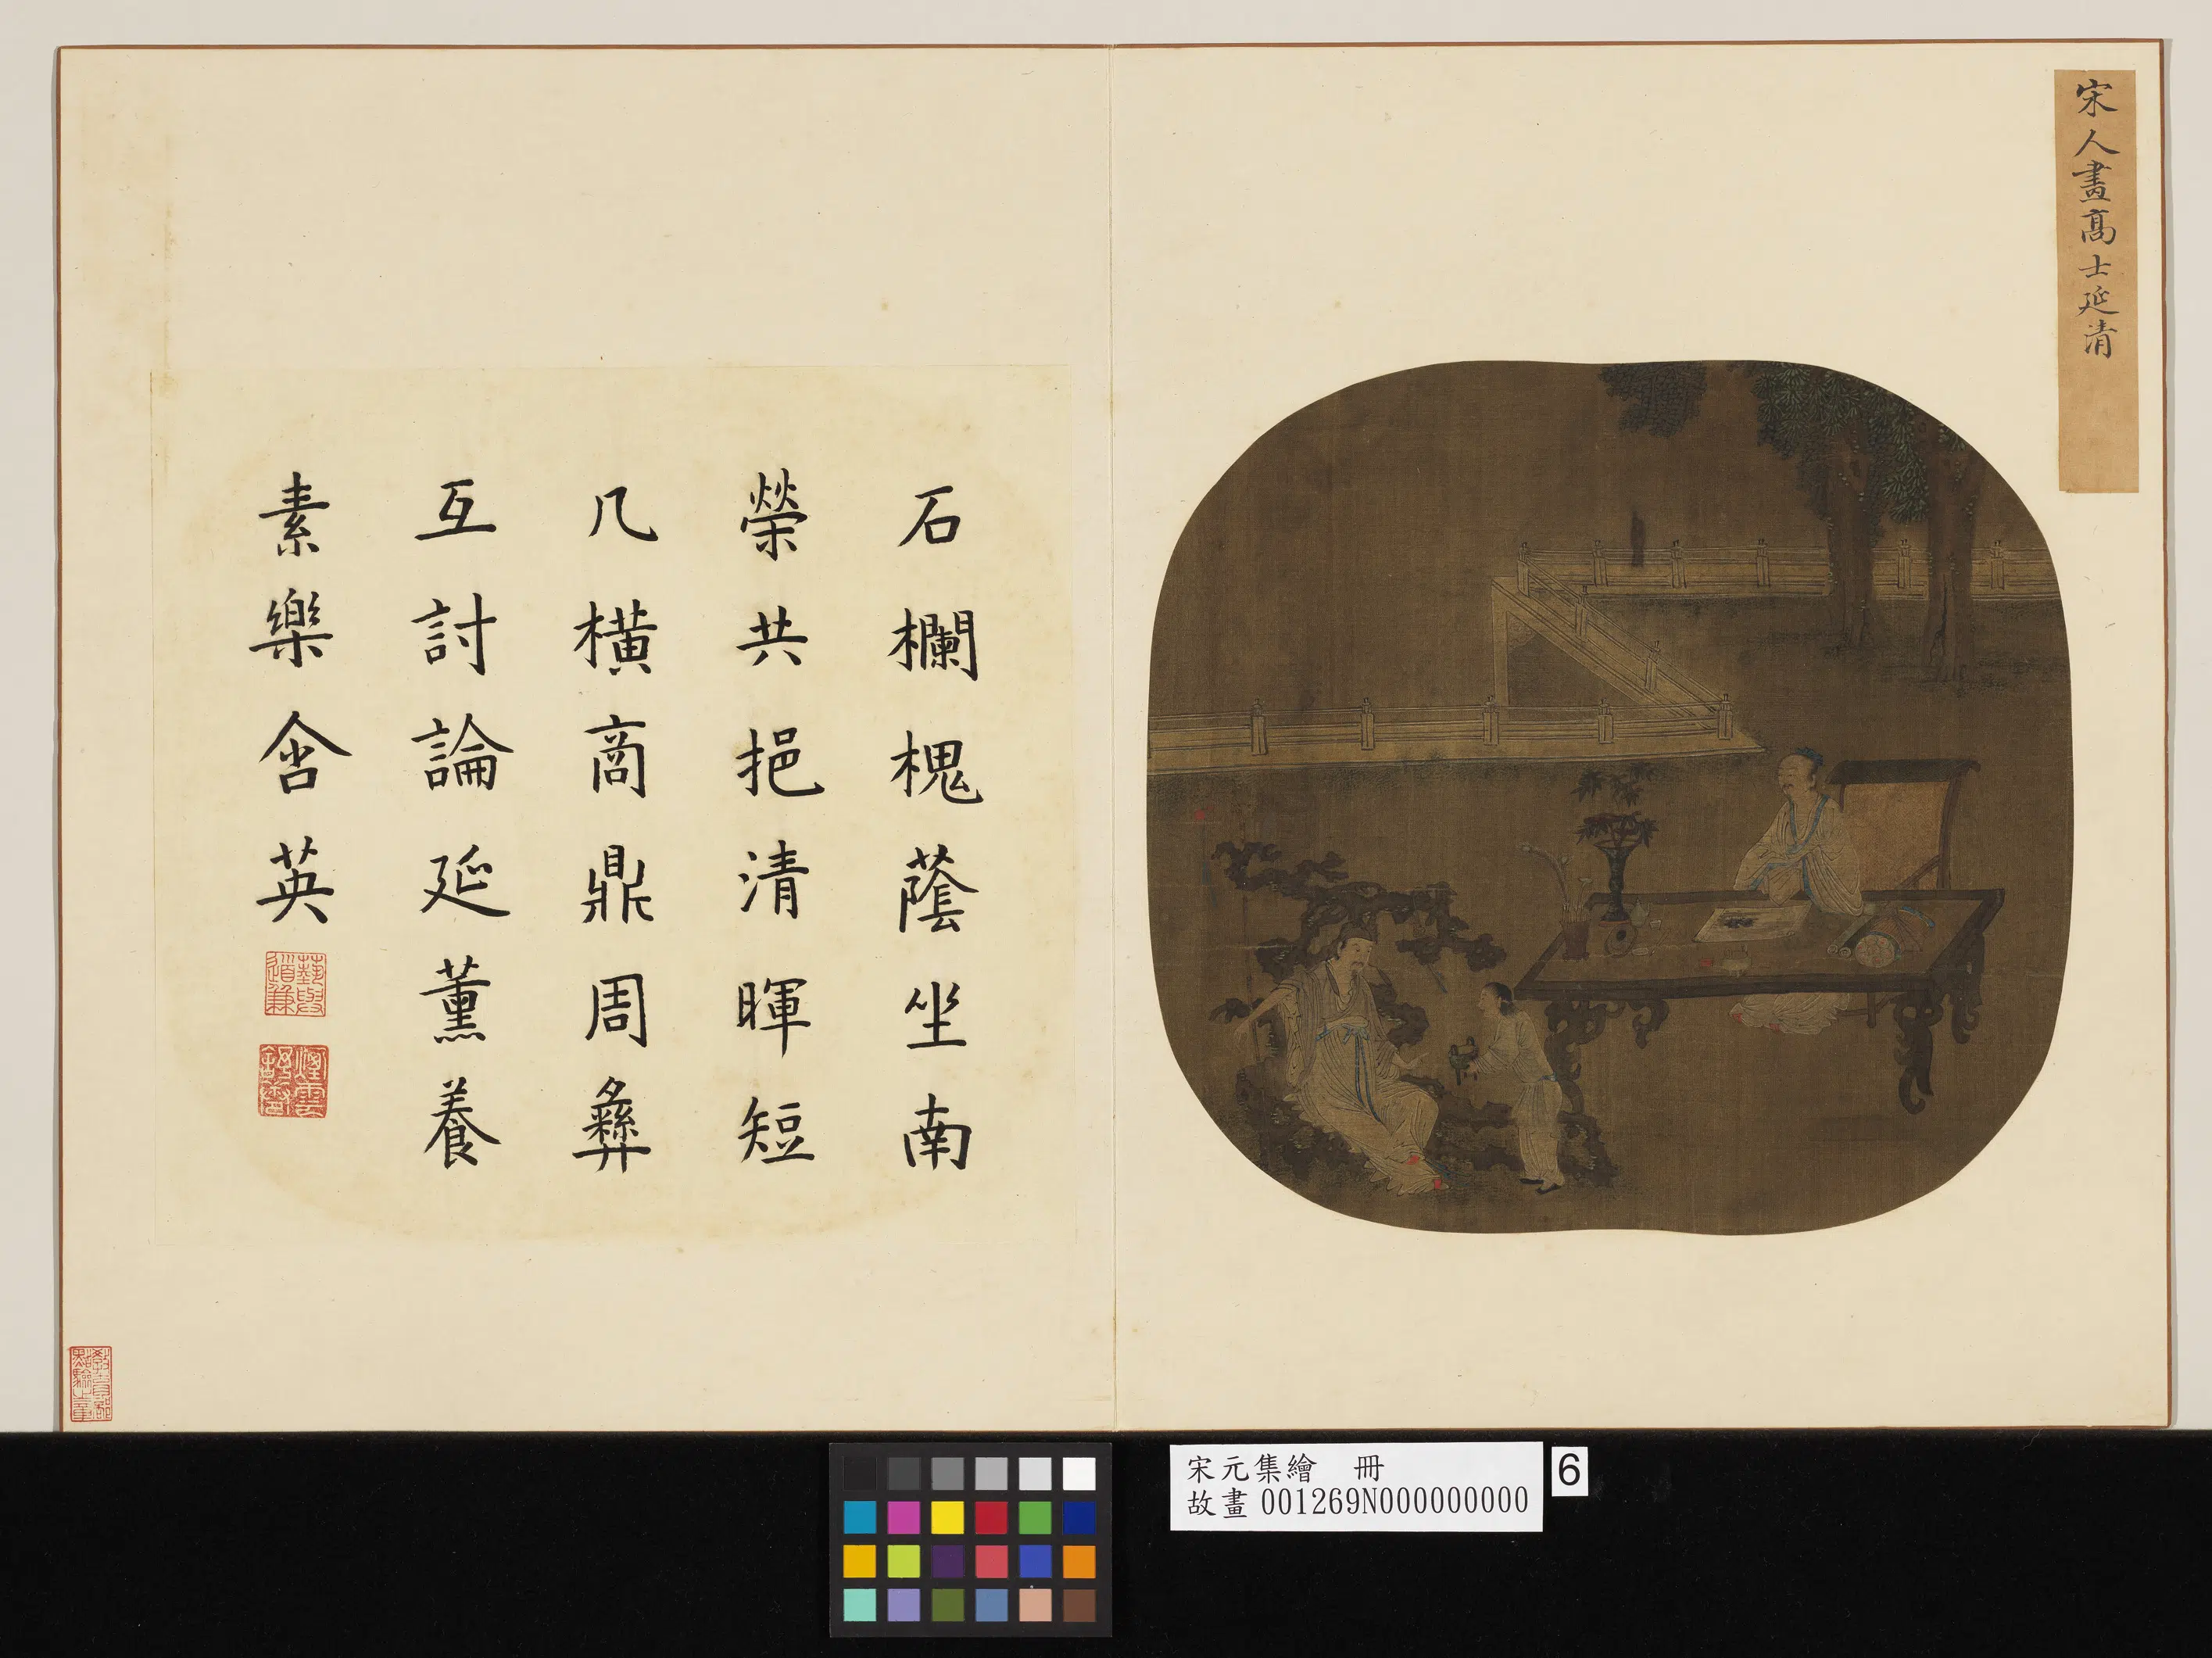 宋人畫高士延清
石欄槐蔭坐南
榮共挹清暉短
几橫商鼎周彝
互討論延薰養
素樂含英
煙雲
宋元集繪 冊
故畫 001269N000000000
6